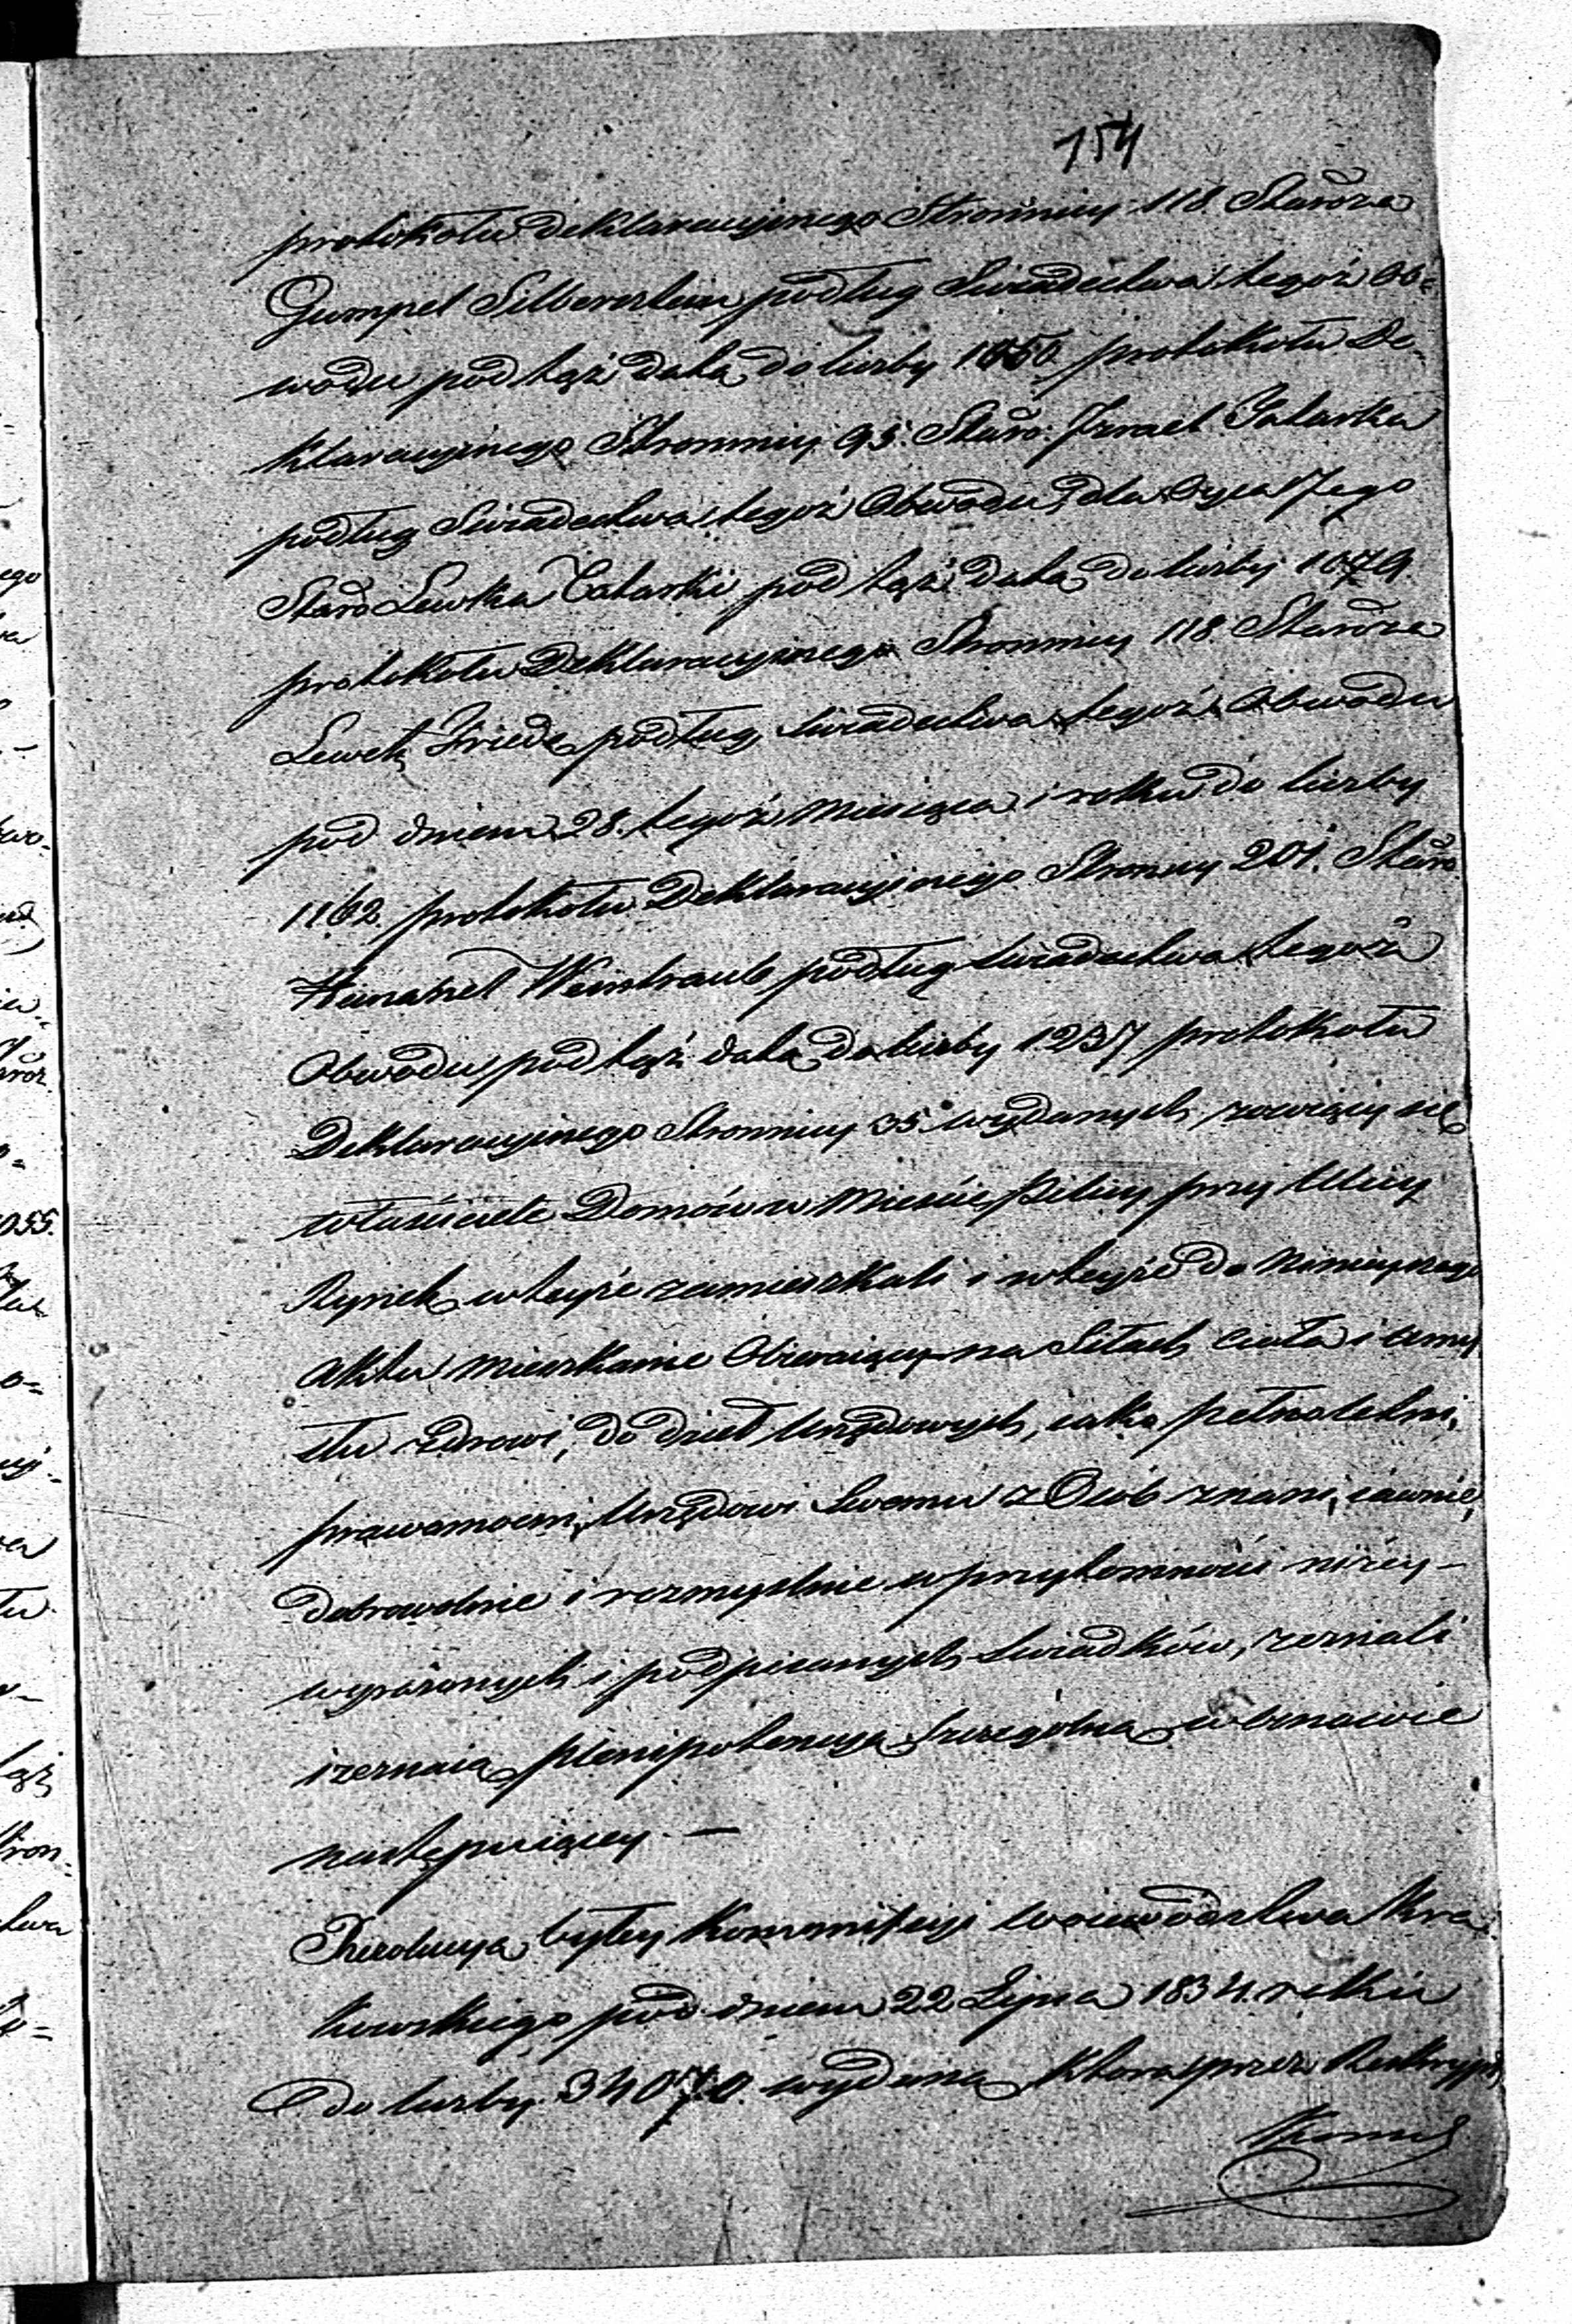 154
protokołu deklaracyjnego Stronnicy 118. Staroza
Gumpel Silbersztein podług Swiadectwa tegoż Ob=
wodu pod tąż datą do liczby 1050 protokołu De-
klaracyjnego Stronnicy 95. Staro: Izrael Tatarka
podług Swiadectwa tegoż Obwodu, dla Oyca Jego
Staro Lewka Tatarki pod tąż datą do liczby 1079.
protokołu Deklaracyjnego Stronnicy 118 Staroza
Lewek Friede podług Swiadectwa tegoż Obwodu
pod dniem 28. tegoż Miesiąca i roku do liczby
1162. protokołu Deklaracyjnego Stronicy 201. Staro
Weintraub podług Swiadectwa tegoż
Obwodu, pod tąż datą do liczby 1237 protokołu
Deklaracyjnego Stronnicy 35 wydanych, zowiący się
właściciele Domów w Mieście Pilicy przy Ulicy
Rynek, w teyże zamieszkali i w teyże do Ninieyszego
Aktu Mieszkanie Obieraiący na Siłach Ciała i Umy
słu zdrowi, do dzieł Urzędowych, iako pełnoletni,
prawomocni, Urzędowi Swemu z Osób znani, iawnie,
dobrowolnie i rozmyslnie w przytomności niżey-
wyrażonych i podpisanych Swiadków, zeznali
i zeznaią plenipotencyą Szczegulną w Osnowie
następuiącey. —
Rezolucya byłey Kommissyi Woiewództwa Kra
kowskiego pod dniem 22 Lipca 1834. roku
do liczby 34070. wydana, Która przez Reskrypt